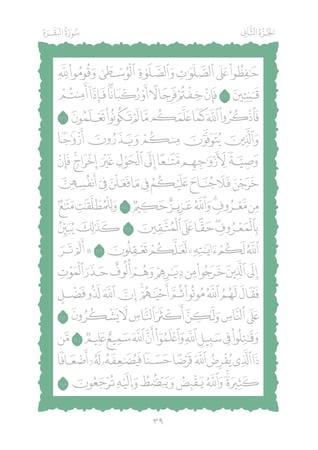 الجُزْءُ الثَّانِي
سُورَةُ البَقَرَةِ
حَٰفِظُوا۟ عَلَى ٱلصَّلَوَٰتِ وَٱلصَّلَوٰةِ ٱلْوُسْطَىٰ وَقُومُوا۟ لِلَّهِ
قَٰنِتِينَ فَإِنْ خِفْتُمْ فَرِجَالًا أَوْ رُكْبَانًا فَإِذَآ أَمِنتُمْ
فَٱذْكُرُوا۟ ٱللَّهَ كَمَا عَلَّمَكُم مَّا لَمْ تَكُونُوا۟ تَعْلَمُونَ
وَٱلَّذِينَ يُتَوَفَّوْنَ مِنكُمْ وَيَذَرُونَ أَزْوَٰجًا
وَصِيَّةً لِّأَزْوَٰجِهِم مَّتَٰعًا إِلَى ٱلْحَوْلِ غَيْرَ إِخْرَاجٍ فَإِنْ
خَرَجْنَ فَلَا جُنَاحَ عَلَيْكُمْ فِى مَا فَعَلْنَ فِىٓ أَنفُسِهِنَّ
مِن مَّعْرُوفٍ وَٱللَّهُ عَزِيزٌ حَكِيمٌ وَلِلْمُطَلَّقَٰتِ مَتَٰعٌۢ
بِٱلْمَعْرُوفِ حَقًّا عَلَى ٱلْمُتَّقِينَ كَذَٰلِكَ يُبَيِّنُ
ٱللَّهُ لَكُمْ ءَايَٰتِهِۦ لَعَلَّكُمْ تَعْقِلُونَ ۞ أَلَمْ تَرَ
إِلَى ٱلَّذِينَ خَرَجُوا۟ مِن دِيَٰرِهِمْ وَهُمْ أُلُوفٌ حَذَرَ ٱلْمَوْتِ
فَقَالَ لَهُمُ ٱللَّهُ مُوتُوا۟ ثُمَّ أَحْيَٰهُمْ إِنَّ ٱللَّهَ لَذُو فَضْلٍ
عَلَى ٱلنَّاسِ وَلَٰكِنَّ أَكْثَرَ ٱلنَّاسِ لَا يَشْكُرُونَ
وَقَٰتِلُوا۟ فِى سَبِيلِ ٱللَّهِ وَٱعْلَمُوٓا۟ أَنَّ ٱللَّهَ سَمِيعٌ عَلِيمٌ مَّن
ذَا ٱلَّذِى يُقْرِضُ ٱللَّهَ قَرْضًا حَسَنًا فَيُضَٰعِفَهُۥ لَهُۥٓ أَضْعَافًا
كَثِيرَةً وَٱللَّهُ يَقْبِضُ وَيَبْصُۜطُ وَإِلَيْهِ تُرْجَعُونَ
٣٩